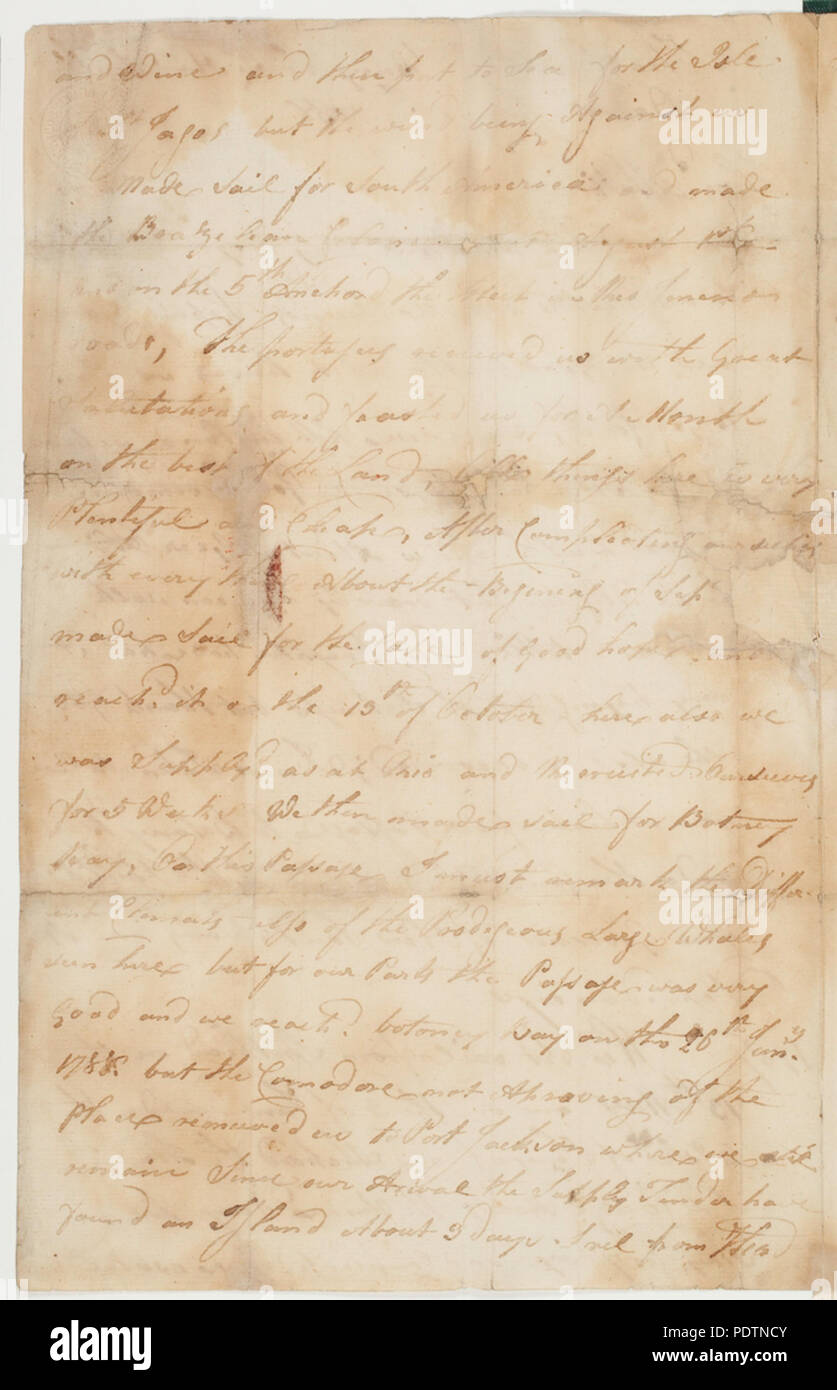 and Wine and then put to Sea for the Isle
Jagos but the wind being Against us
Made Sail for South America and made
the
in the 5th Anchord
roads, The portugus received us with Great
Salutations and feasted us for A Month
on the best of the Land, things here is very
Plentiful and Cheap, After Compleating ourselves
with every thing About the Begining of Sepr
made Sail for the Cape of Good hope and
reachd it on the 13th of October here also we
was Supplyd as at Rio and Recruited Ourselves
for 5 Weeks We then made sail for Botney
Bay, On this Passage I must remark the Differ-
ent also of the Prodigeous Large Whales
seen here but for our Parts the Passage was very
Good and we reachd botoney bay on the 20th Jany
1788. but the Comodore not Aproving of the
Place remoued us to Port Jackson where we
remain Since our Arival the Supply Tender have
found an Island About 9 Days Sail from
alamy
Image ID: PDTNCY
www.alamy.com